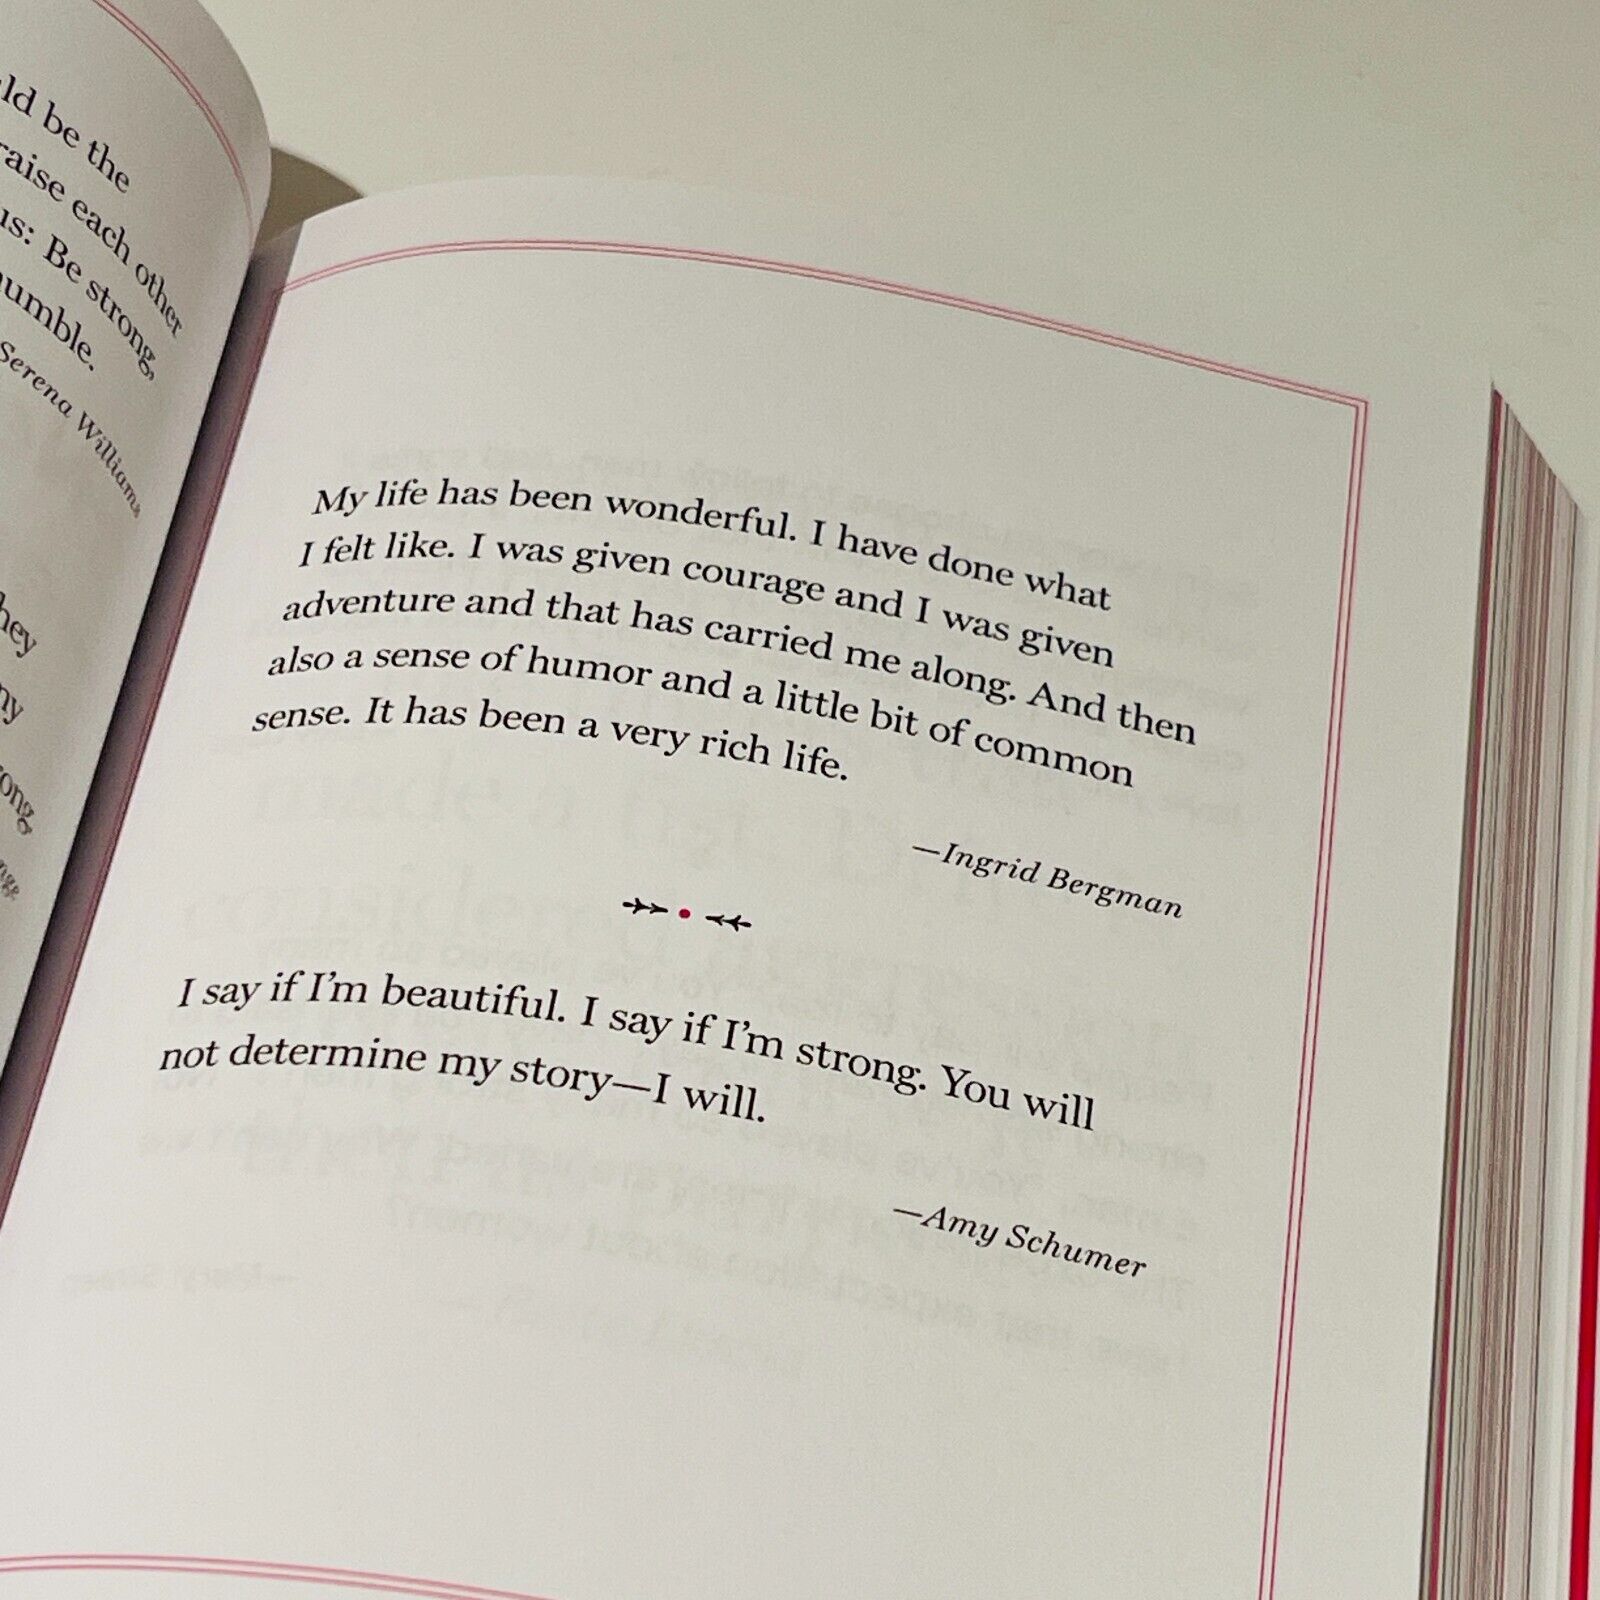 ld be the
raise each other
us: Be strong,
umble.
Serena Williams
hey
ny
ong,
My life has been wonderful. I have done what
I felt like. I was given courage and I was given
adventure and that has carried me along. And then
also a sense of humor and a little bit of common
sense. It has been a very rich life.
—Ingrid Bergman
I say if I'm beautiful. I say if I'm strong. You will
not determine my story—I will.
—Amy Schumer